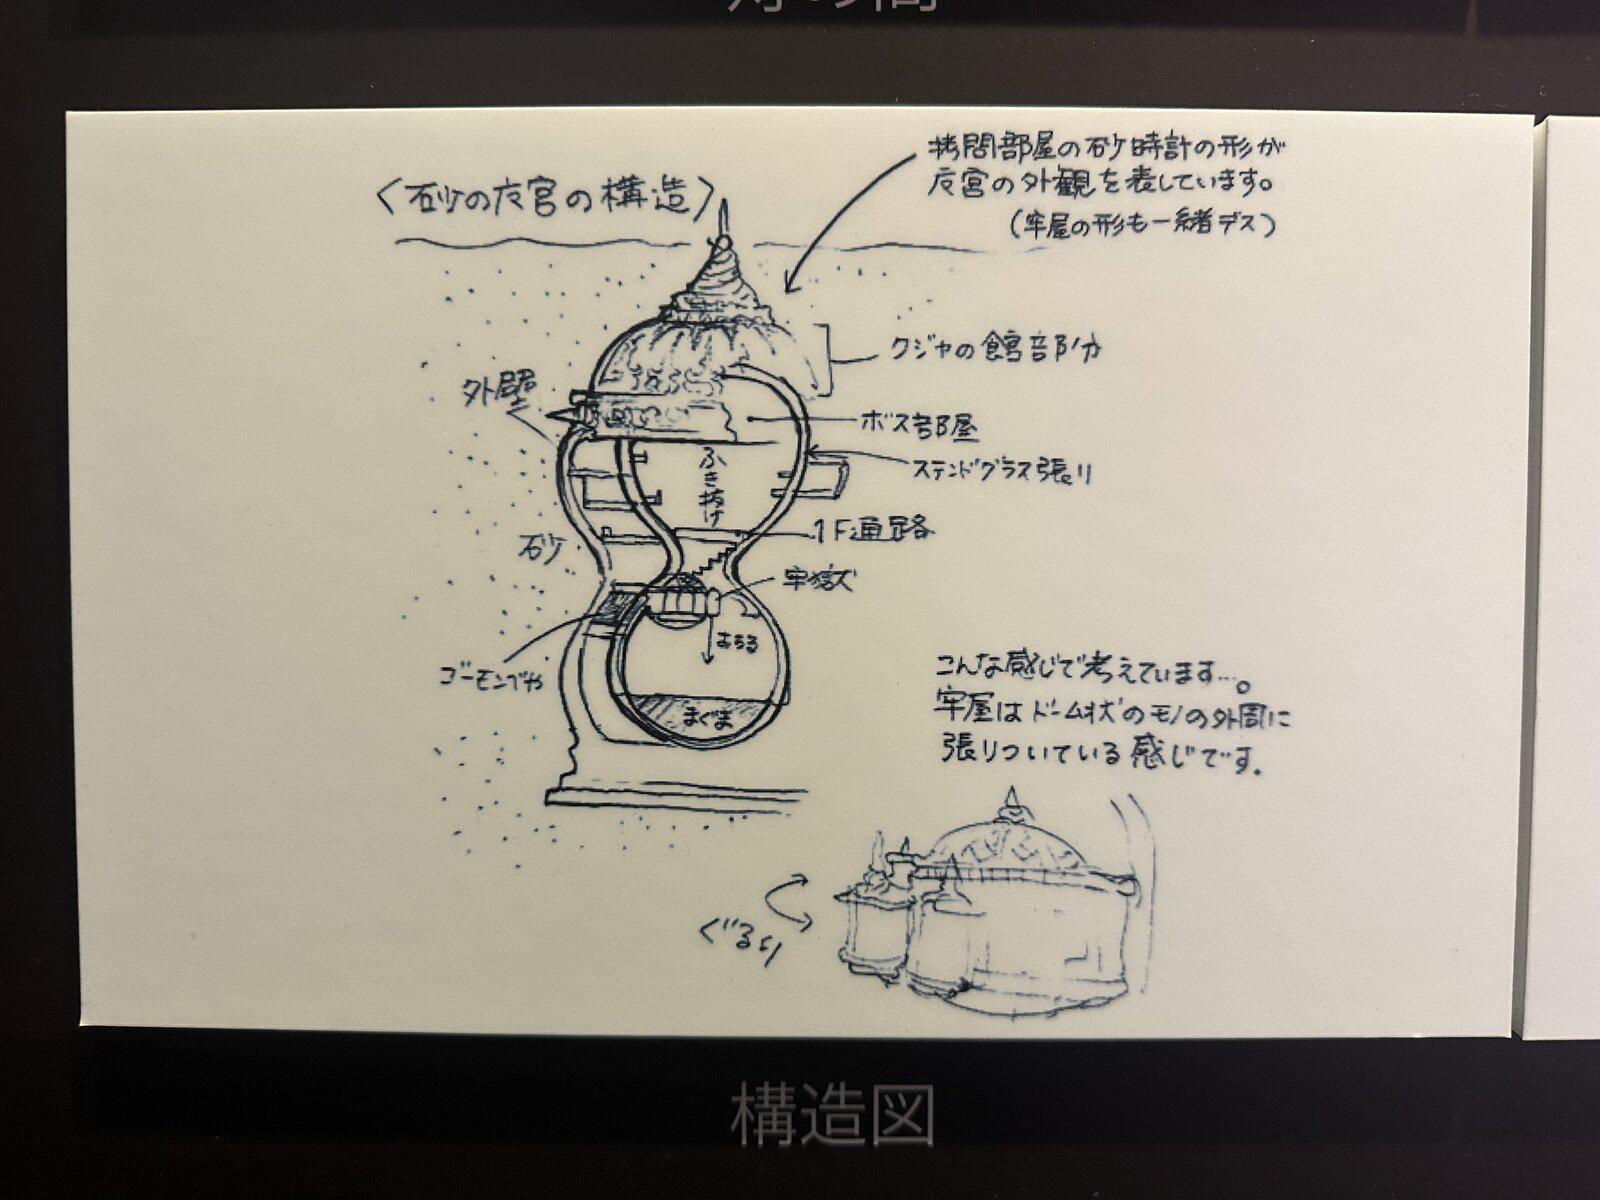 〈砂の宮の構造〉
拷問部屋の砂時計の形が
宮の外観を表しています。
(牢屋の形も一緒デス)
クジャの館部分
外壁
ボス部屋
ステンドグラス張り
ふき抜け
1F通路
砂
牢獄
おちる
ゴーモンベや
まぐま
こんな感じで考えています…。
牢屋はドーム状のモノの外周に
張りついている感じです.
ぐるり
構造図